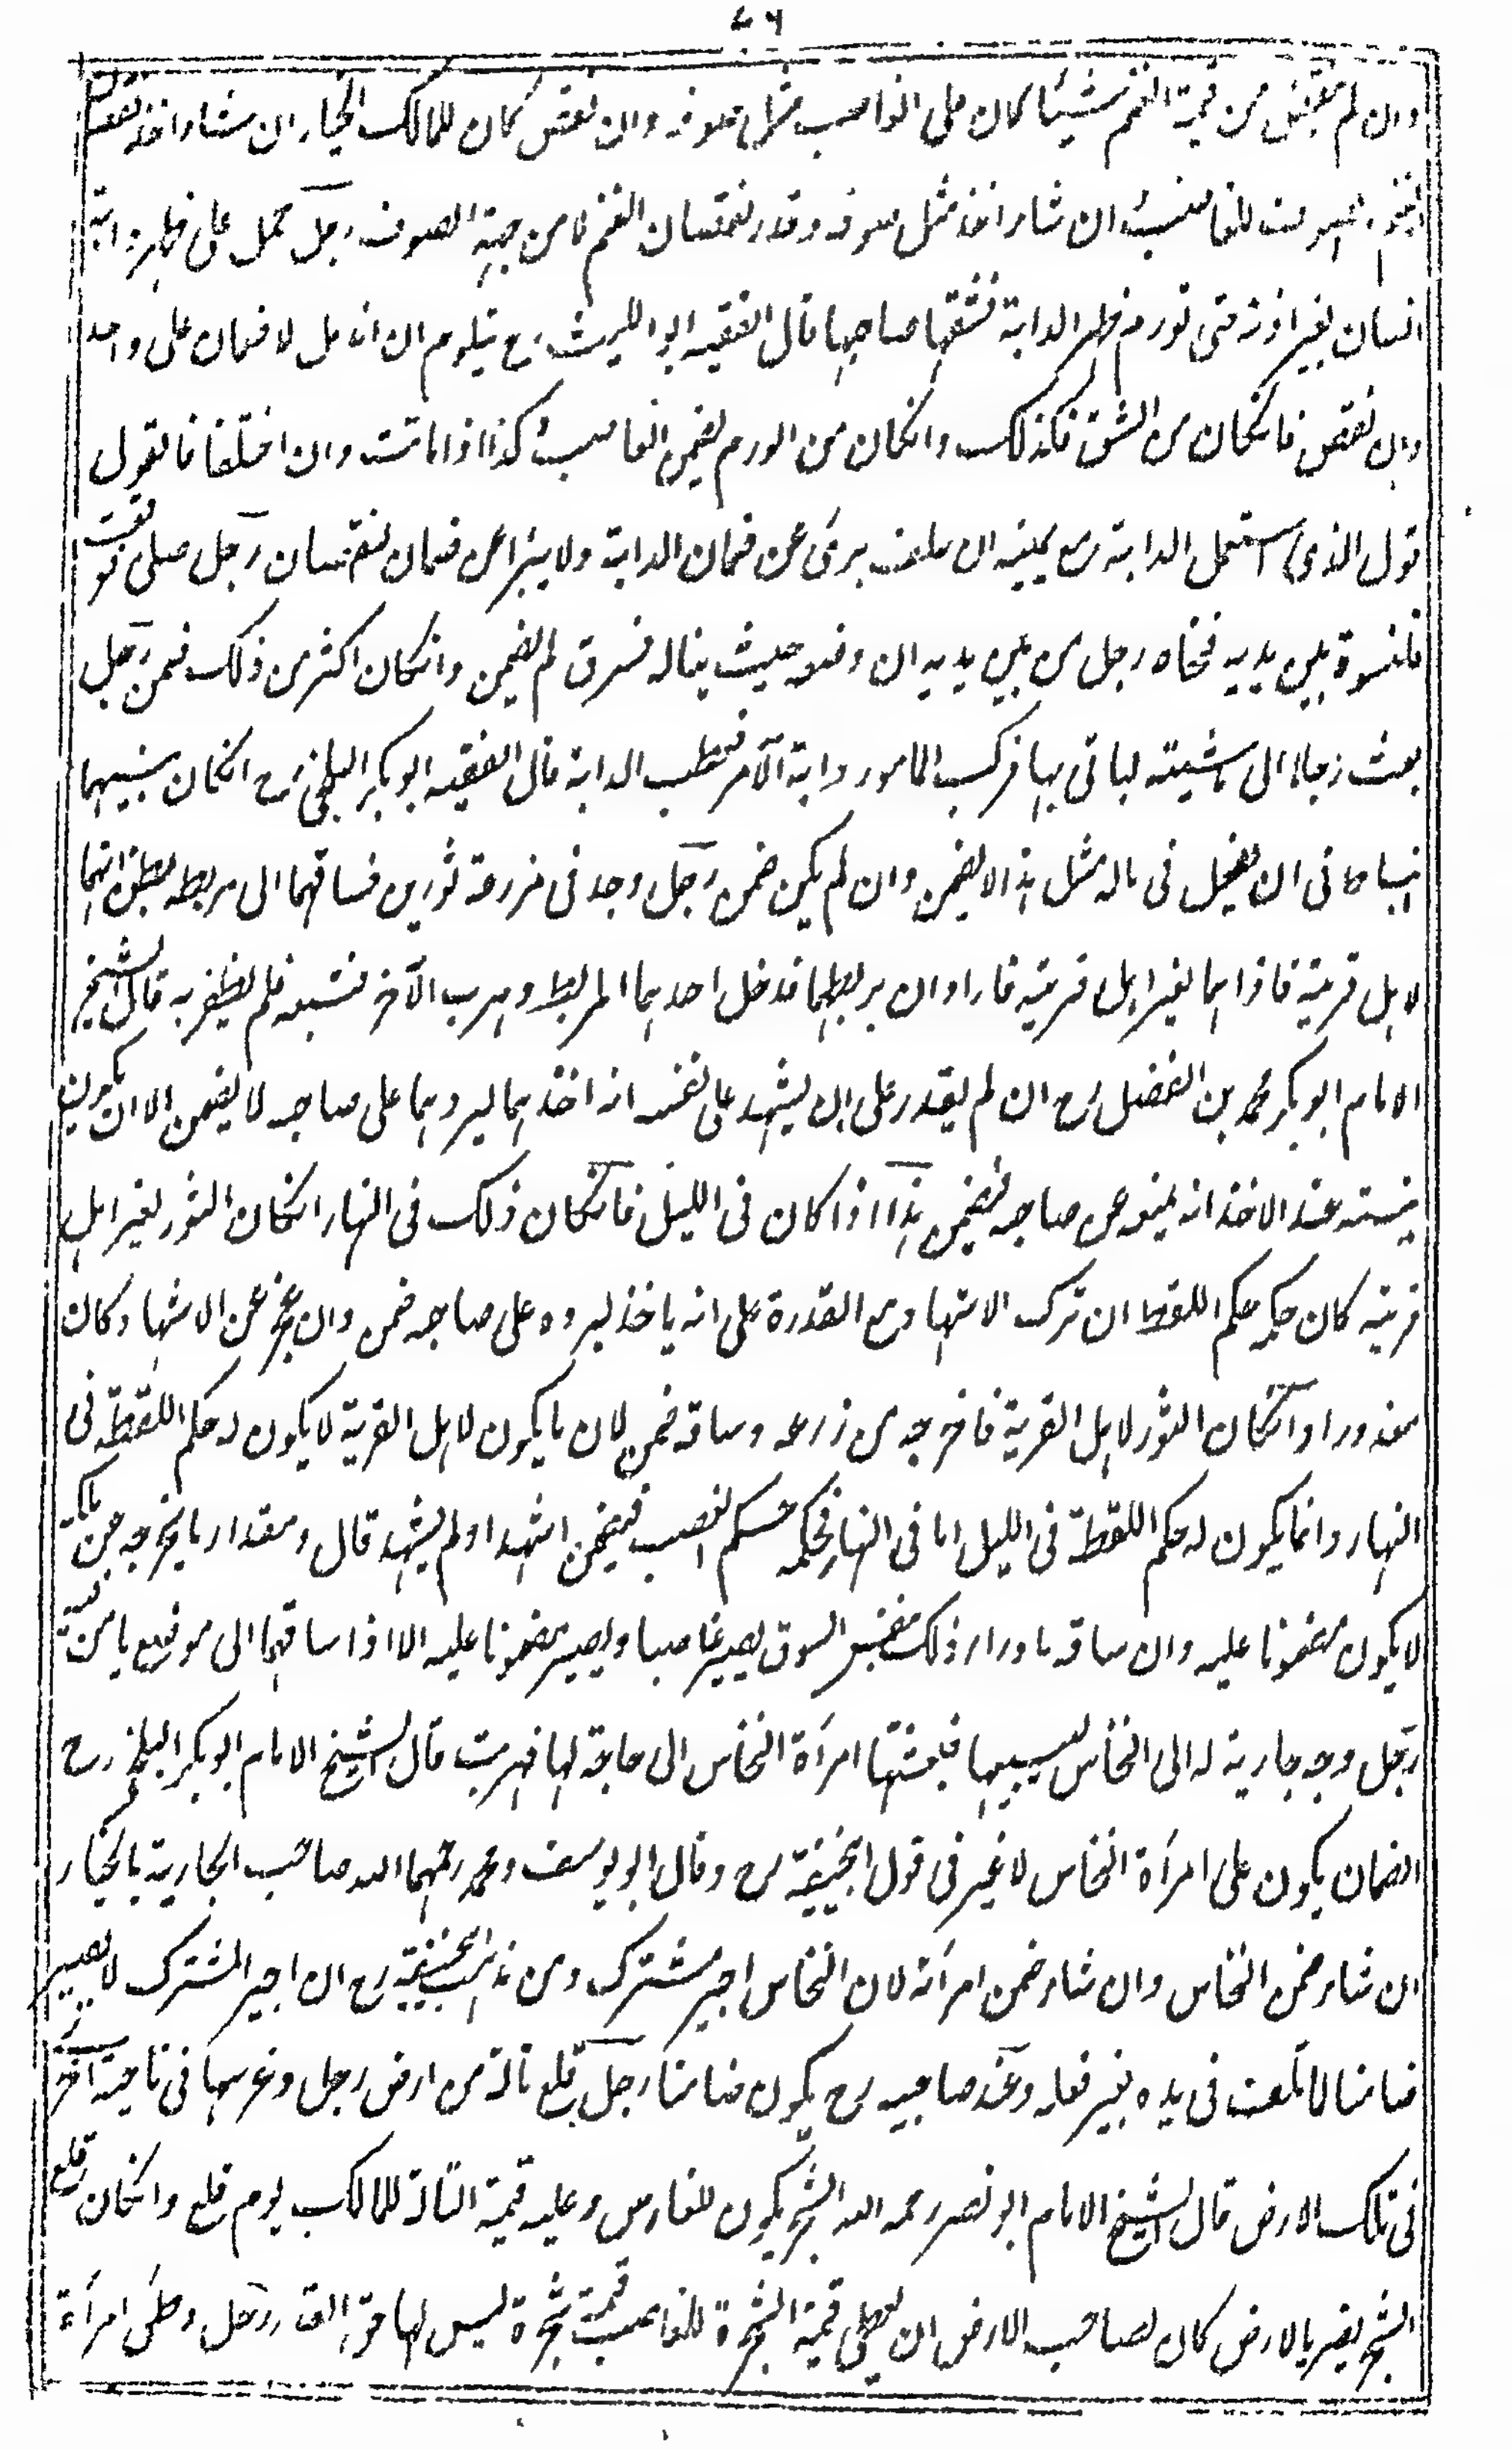 ٤٦
وان لم ينقص من قيمة الغنم شيئا كان على الغاصب مثل صوفه وان نقص كان للمالك الخيار ان شاء اخذ نقص
الغنم والصوف للغاصب وان شاء اخذ مثل صوفه وقدر نقصان الغنم لا من جهة الصوف رجل حمل على ظهر دابة
انسان بغير اذنه حتى تورم ظهر الدابة فشقها صاحبها قال الفقيه ابو الليث رح يتلوم ان اندمل لا ضمان على واحد
وان نقص فانكان من الشق فكذلك وانكان من الورم يضمن الغاصب كذا اذا ماتت وان اختلفا فالقول
قول الذى استعمل الدابة مع يمينه ان حلف برئ عن ضمان الدابة ولا يبرأ عن ضمان النقصان رجل صلى فوقعت
قلنسوة بين يديه فنحاه رجل من بين يديه ان وضعه حيث يناله فسرق لم يضمن وانكان اكثر من ذلك ضمن رجل
بعث رجلا الى ماشيته لياتى بها فركب المامور دابة الآمر فعطب الدابة قال الفقيه ابو بكر البلخى رح انكان بينهما
انبساط فى ان يفعل فى ماله مثل هذا لا يضمن وان لم يكن ضمن رجل وجد فى مزرعة ثورين فساقهما الى مربطه يظن انهما
لاهل قريته فاذا هما لغير اهل قريته فاراد ان يربطهما فدخل احدهما المربط وهرب الآخر فتبعه فلم يظفر به قال الشيخ
الامام ابو بكر محمد بن الفضل رح ان لم يقدر على ان يشهد على نفسه انه اخذهما ليردهما على صاحبه لا يضمن الا ان يكون
نيته عند الاخذ انه يمنعه من صاحبه فيضمن هذا اذا كان فى الليل فانكان ذلك فى النهار انكان الثور لغير اهل
قريته كان حكمه حكم اللقطة ان ترك الاشهاد مع القدرة على انه ياخذ ليرده على صاحبه ضمن وان عجز عن الاشهاد كان
معذورا وانكان الثور لاهل القرية فاخرجه من زرعه وساقه ضمن لان ما يكون لاهل القرية لا يكون له حكم اللقطة فى
النهار وانما يكون له حكم اللقطة فى الليل اما فى النهار فحكمه حكم الغصب فيضمن اشهد او لم يشهد قال ومقدار ما يخرجه عن ملكه
لا يكون مضمونا عليه وان ساقه ما وراء ذلك فبنفس السوق يصير غاصبا ويصير مضمونا عليه الا اذا ساقهما الى موضع يامن فيه
رجل وجه جارية له الى النخاس ليبيعها فبعثتها امرأة النخاس الى حاجة لها فهربت قال الشيخ الامام ابو بكر البلخى رح
الضمان يكون على امرأة النخاس لا غير فى قول ابيحنيفة رح وقال ابو يوسف ومحمد رحمهما الله صاحب الجارية بالخيار
ان شاء ضمن النخاس وان شاء ضمن امرأته لان النخاس اجير مشترك ومن مذهب ابيحنيفة رح ان اجير المشترك لا يصير
ضامنا لما تلف فى يده بغير فعله وعند صاحبيه رح يكون ضامنا رجل قلع تالة من ارض رجل وغرسها فى ناحية اخرى
فى تلك الارض قال الشيخ الامام ابو نصر رحمه الله الشجر يكون للغارس وعليه قيمة التالة للمالك يوم قلع وانكان قلع
الشجر يضر بالارض كان لصاحب الارض ان يعطى قيمة الشجرة للغاصب قيمة شجرة ليس لها حق القرار رجل وطئ امرأة